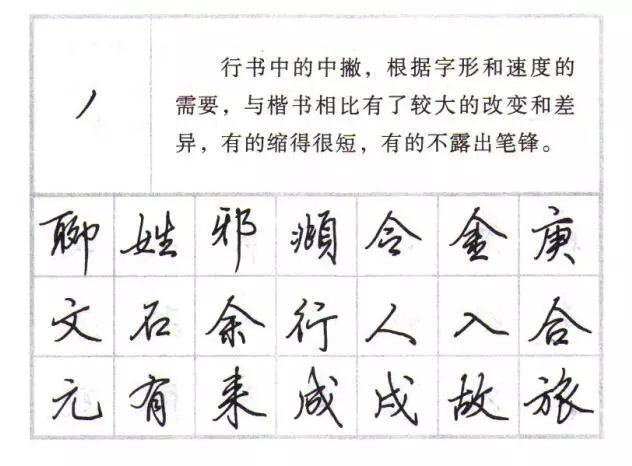 行书中的中撇，根据字形和速度的
需要，与楷书相比有了较大的改变和差
异，有的缩得很短，有的不露出笔锋。
聊 姓 邪 濒 含 金 庚
文 石 余 行 人 入 合
元 有 来 咸 戌 故 旅